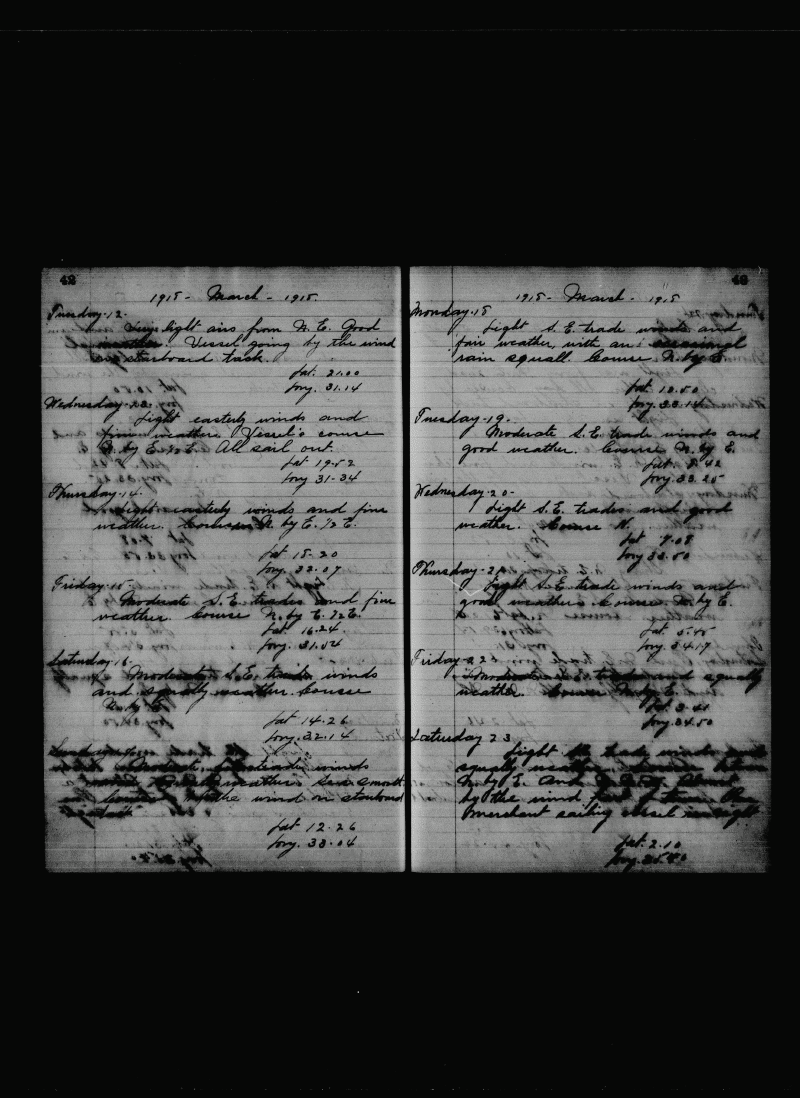 42
1918 - March - 1918.
Tuesday. 12.
Very light airs from N. E. Good
weather. Vessel going by the wind
on starboard tack.
Lat. 21.00
Long. 31.14
Wednesday. 13.
Light easterly winds and
fine weather. Vessel's course
N. by E. ½ E. All sail out.
Lat 19.52
Long 31-34
Thursday. 14.
Light easterly winds and fine
weather. Course N. by E. ½ E.
Lat 18.20
Long. 32.07
Friday. 15.
Moderate S. E. trades and fine
weather Course N. by E. ½ E.
Lat. 16.24.
Long. 31.54
Saturday. 16.
Moderate S. E. trade winds
and squally weather. Course
N. by E.
Lat 14.26
Long. 32.14
Moderate trade winds
weather. Sea smooth
the wind on starboard
Lat 12.26
Long. 33.04
43
1918 - March - 1918
Monday. 18
Light S. E. trade winds and
fair weather, with an occasional
rain squall. Course N. by E.
Lat. 10.50
Long. 33.14
Tuesday. 19.
Moderate S. E. trade winds and
good weather. Course N. by E.
Lat. 8.42
Long. 33.25
Wednesday. 20.
Light S. E. trades and good
weather. Course N.
Lat 7.08
Long 33.50
Thursday. 21
Light S. E. trade winds and
good weather. Course N. by E.
Lat. 5.45
Long. 34.17
Friday 22
Moderate S. E. trades and squally
weather. Course N. by E.
Lat. 3.41
Long. 34.50
Saturday 23
Light trade winds and
squally weather
N. by E. and
by the wind
merchant sailing vessel in sight
Lat. 2.10
Long.